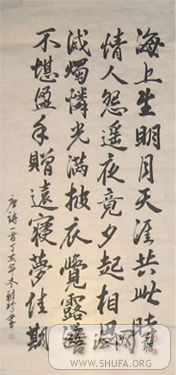 海上生明月天涯共此時
情人怨遥夜竟夕起相思
滅燭憐光滿披衣覺露滋
不堪盈手贈還寢夢佳期
唐詩一首丁亥年冬書
法网
WWW.SHUFA.ORG